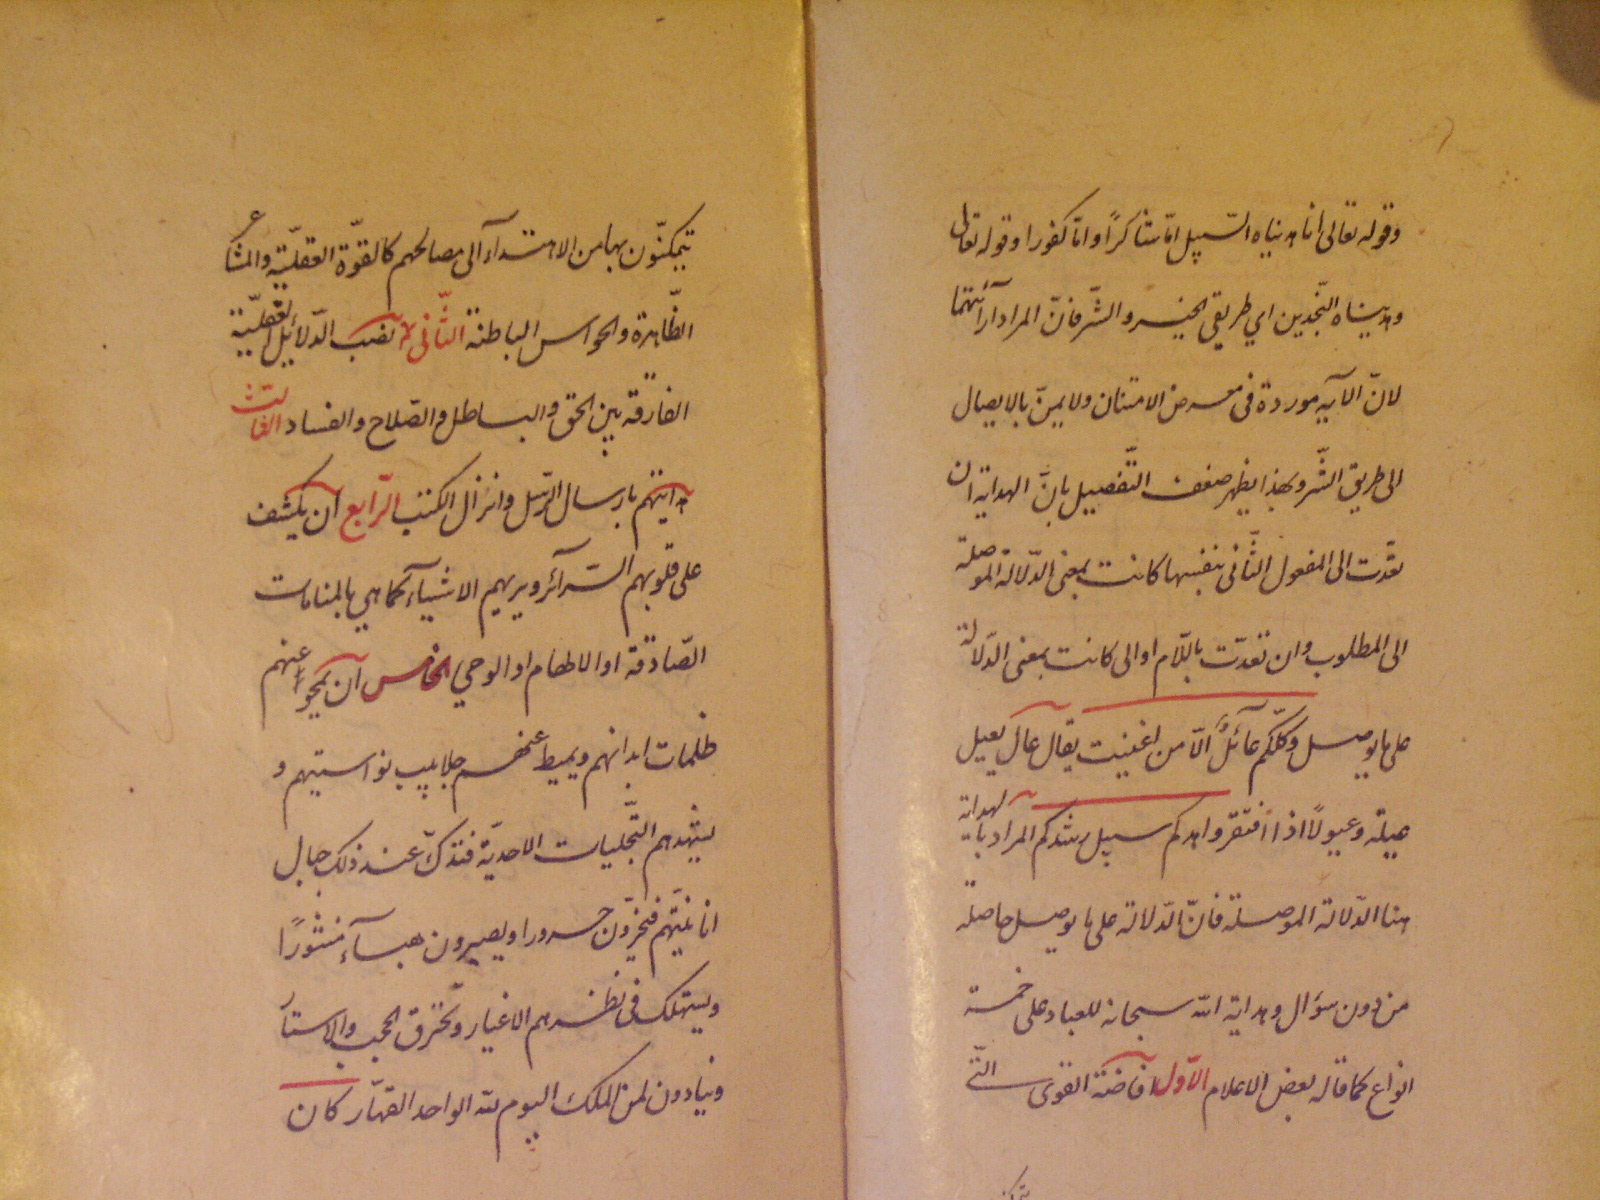 وقوله تعالى انا هديناه السّبيل امّا شاكرًا وامّا كفورا وقوله تعالى
وهديناه النّجدين اي طريقي الخير والشّر فانّ المراد آرائتهما
لانّ الآيه موردة فى معرض الامتنان ولا يمنّ بالايصال
الى طريق الشّر وبهذا يظهر ضعف التّفصيل بانّ الهداية ان
تعدّت الى المفعول الثّانى بنفسها كانت بمعنى الدّلالة الموصلة
الى المطلوب وان تعدّت باللّام او الى كانت بمعنى الدّلالة
على ما يوصل وكلّكم عآئلٌ الّا من اغنيت يقال عال يعيل
عيلة وعيولًا اذا افتقر واهدكم سبيل رشدكم المراد بالهداية
هنا الدّلالة الموصلة فانّ الدّلالة على ما يوصل حاصلة
من دون سؤال وهداية الله سبحانه للعباد على خمسة
انواع كما قاله بعض الاعلام الاوّل افاضة القوى الّتى
يتمكنّون بها من الاهتدآء الى مصالحهم كالقوّة العقليّة والمشاعر
الظّاهرة والحواس الباطنة الثّانى نصب الدّلائل العقليّة
الفارقة بين الحق والباطل والصّلاح والفساد الثالث
هدايتهم بارسال الرّسل وانزال الكتب الرّابع ان يكشف
على قلوبهم السّرآئر ويريهم الاشيآء كما هي بالمنامات
الصّادقة او الالهام او الوحي الخامس ان يمحو عنهم
ظلمات ابدانهم ويميط عنهم جلابيب نواسيتهم و
ليشهدهم التّجليات الاحديّة فتندكّ عند ذلك جبال
انانيّتهم فيخرّون خرورا ويصيرون هبآء منثورًا
ويستهلك فى نظرهم الاغيار وتخترق الحجب والاستار
وينادون لمن الملك اليوم لله الواحد القهّار كان